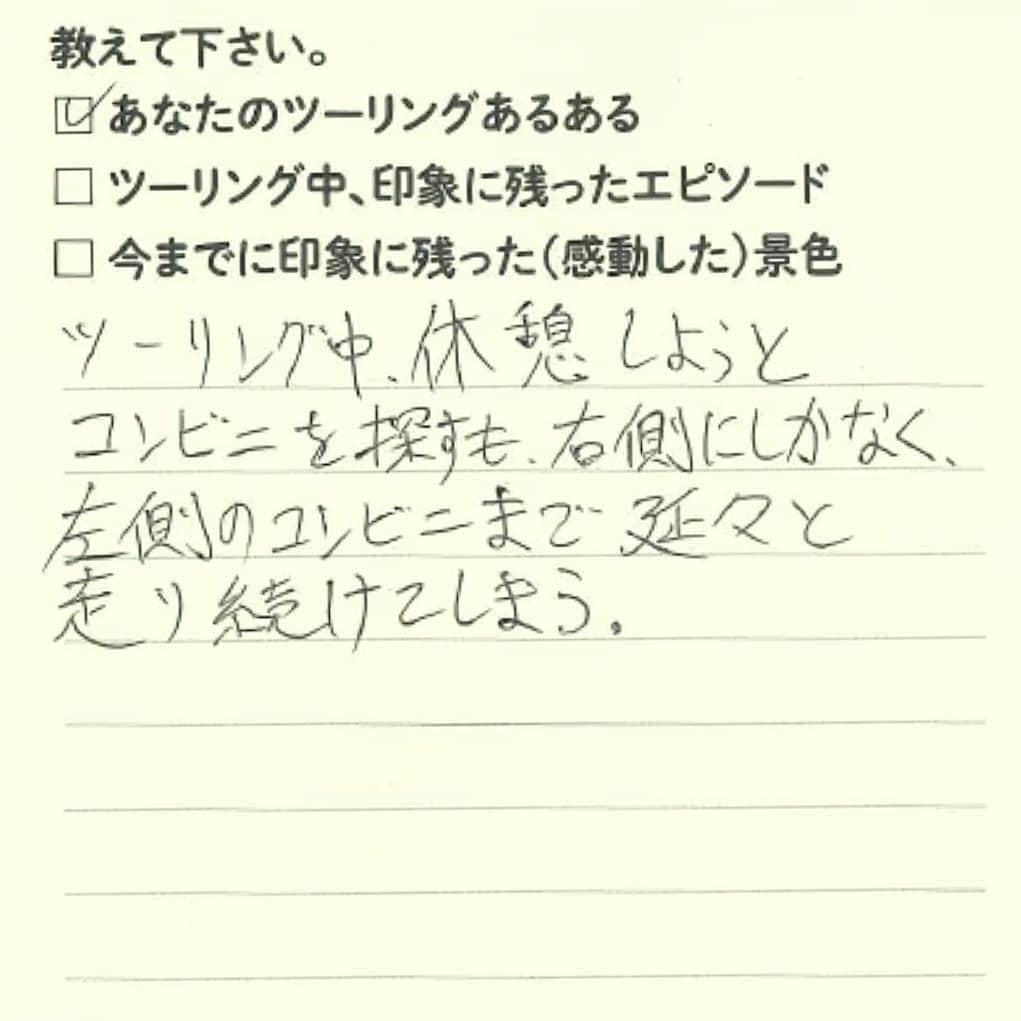 教えて下さい。
☑あなたのツーリングあるある
□ツーリング中、印象に残ったエピソード
□今までに印象に残った(感動した)景色
ツーリング中、休憩しようと
コンビニを探すも、右側にしかなく、
左側のコンビニまで延々と
走り続けてしまう。